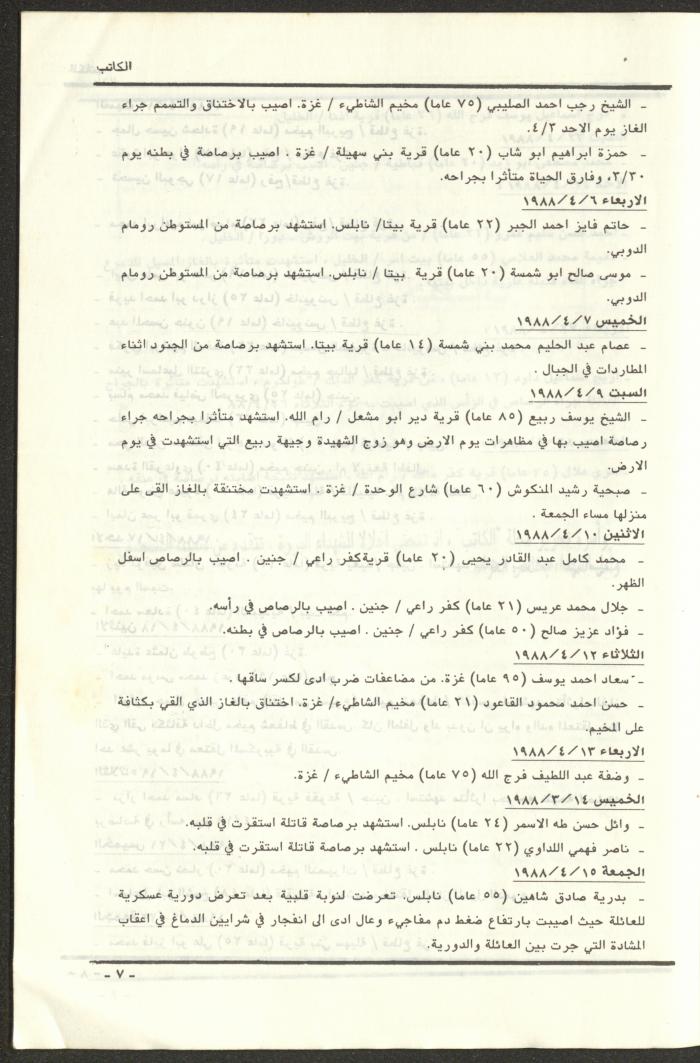 الكاتب
ـ الشيخ رجب احمد الصليبي (٧٥ عاما) مخيم الشاطيء / غزة. اصيب بالاختناق والتسمم جراء
الغاز يوم الاحد ٤/٣.
ـ حمزة ابراهيم ابو شاب (٢٠ عاما) قرية بني سهيلة / غزة . اصيب برصاصة في بطنه يوم
٣/٣٠، وفارق الحياة متأثرا بجراحه.
الاربعاء ١٩٨٨/٤/٦
ـ حاتم فايز احمد الجبر (٢٢ عاما) قرية بيتا/ نابلس. استشهد برصاصة من المستوطن رومام
الدوبي.
ـ موسى صالح ابو شمسة (٢٠ عاما) قرية بيتا / نابلس. استشهد برصاصة من المستوطن رومام
الدوبي.
الخميس ١٩٨٨/٤/٧
ـ عصام عبد الحليم محمد بني شمسة (١٤ عاما) قرية بيتا. استشهد برصاصة من الجنود اثناء
المطاردات في الجبال .
السبت ١٩٨٨/٤/٩
ـ الشيخ يوسف ربيع (٨٥ عاما) قرية دير ابو مشعل / رام الله. استشهد متأثرا بجراحه جراء
رصاصة اصيب بها في مظاهرات يوم الارض وهو زوج الشهيدة وجيهة ربيع التي استشهدت في يوم
الارض.
ـ صبحية رشيد المنكوش (٦٠ عاما) شارع الوحدة / غزة . استشهدت مختنقة بالغاز القى على
منزلها مساء الجمعة .
الاثنين ١٩٨٨/٤/١٠
ـ محمد كامل عبد القادر يحيى (٢٠ عاما) قريةكفر راعي / جنين . اصيب بالرصاص اسفل
الظهر.
ـ جلال محمد عريس (٢١ عاما) كفر راعي / جنين . اصيب بالرصاص في رأسه.
ـ فؤاد عزيز صالح (٥٠ عاما) كفر راعي / جنين . اصيب بالرصاص في بطنه.
الثلاثاء ١٩٨٨/٤/١٢
ـ سعاد احمد يوسف (٩٥ عاما) غزة. من مضاعفات ضرب ادى لكسر ساقها .
ـ حسن احمد محمود القاعود (٢١ عاما) مخيم الشاطيء/ غزة. اختناق بالغاز الذي القي بكثافة
على المخيم.
الاربعاء ١٩٨٨/٤/١٣
ـ وضفة عبد اللطيف فرج الله (٧٥ عاما) مخيم الشاطيء / غزة.
الخميس ١٩٨٨/٣/١٤
ـ وائل حسن طه الاسمر (٢٤ عاما) نابلس. استشهد برصاصة قاتلة استقرت في قلبه.
ـ ناصر فهمي اللداوي (٢٢ عاما) نابلس . استشهد برصاصة قاتلة استقرت في قلبه.
الجمعة ١٩٨٨/٤/١٥
ـ بدرية صادق شاهين (٥٥ عاما) نابلس. تعرضت لنوبة قلبية بعد تعرض دورية عسكرية
للعائلة حيث اصيبت بارتفاع ضغط دم مفاجيء وعال ادى الى انفجار في شرايين الدماغ في اعقاب
المشادة التي جرت بين العائلة والدورية.
ـ ٧ ـ